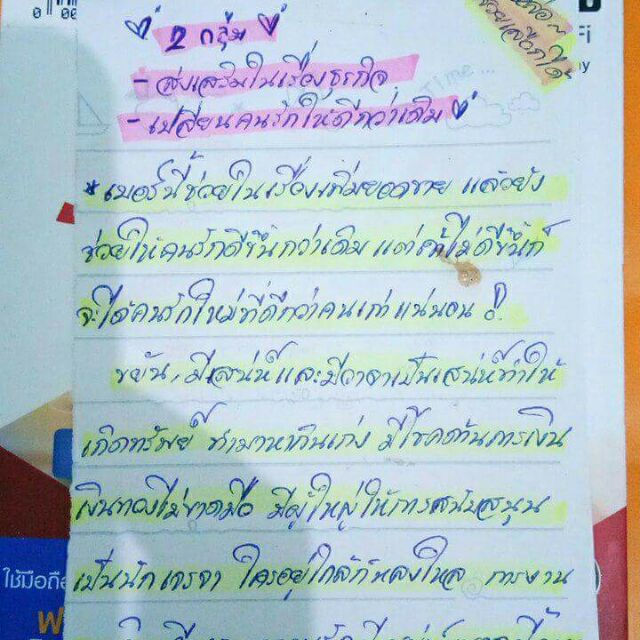 2 กลุ่ม
- ส่งเสริมในเรื่องธุรกิจ
- เปลี่ยนคนรักให้ดีกว่าเดิม
* เบอร์นี้ช่วยในเรื่องเพิ่มยอดขาย แล้วยัง
ช่วยให้คนรักดีขึ้นกว่าเดิม แต่ถ้าไม่ดีขึ้นก็
จะได้คนรักใหม่ที่ดีกว่าคนเก่าแน่นอน!
ขยัน, มีเสน่ห์ และมีวาจาเป็นเสน่ห์ทำให้
เกิดทรัพย์ ทำมาหากินเก่ง มีโชคด้านการเงิน
เงินทองไม่ขาดมือ มีผู้ใหญ่ให้การสนับสนุน
เป็นนักเจรจา ใครอยู่ใกล้ก็หลงใหล การงาน
ใช้มือถือ